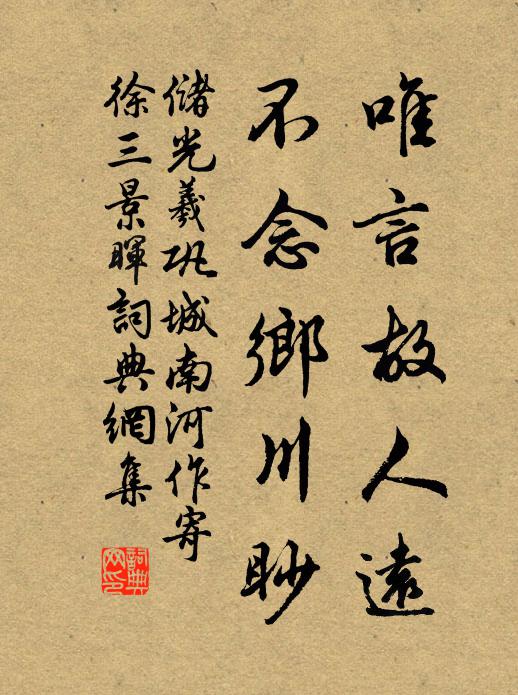 唯言故人遠
不念鄉川眇
儲光羲巩城南河作寄
徐三景暉詞典網集
詞典網印